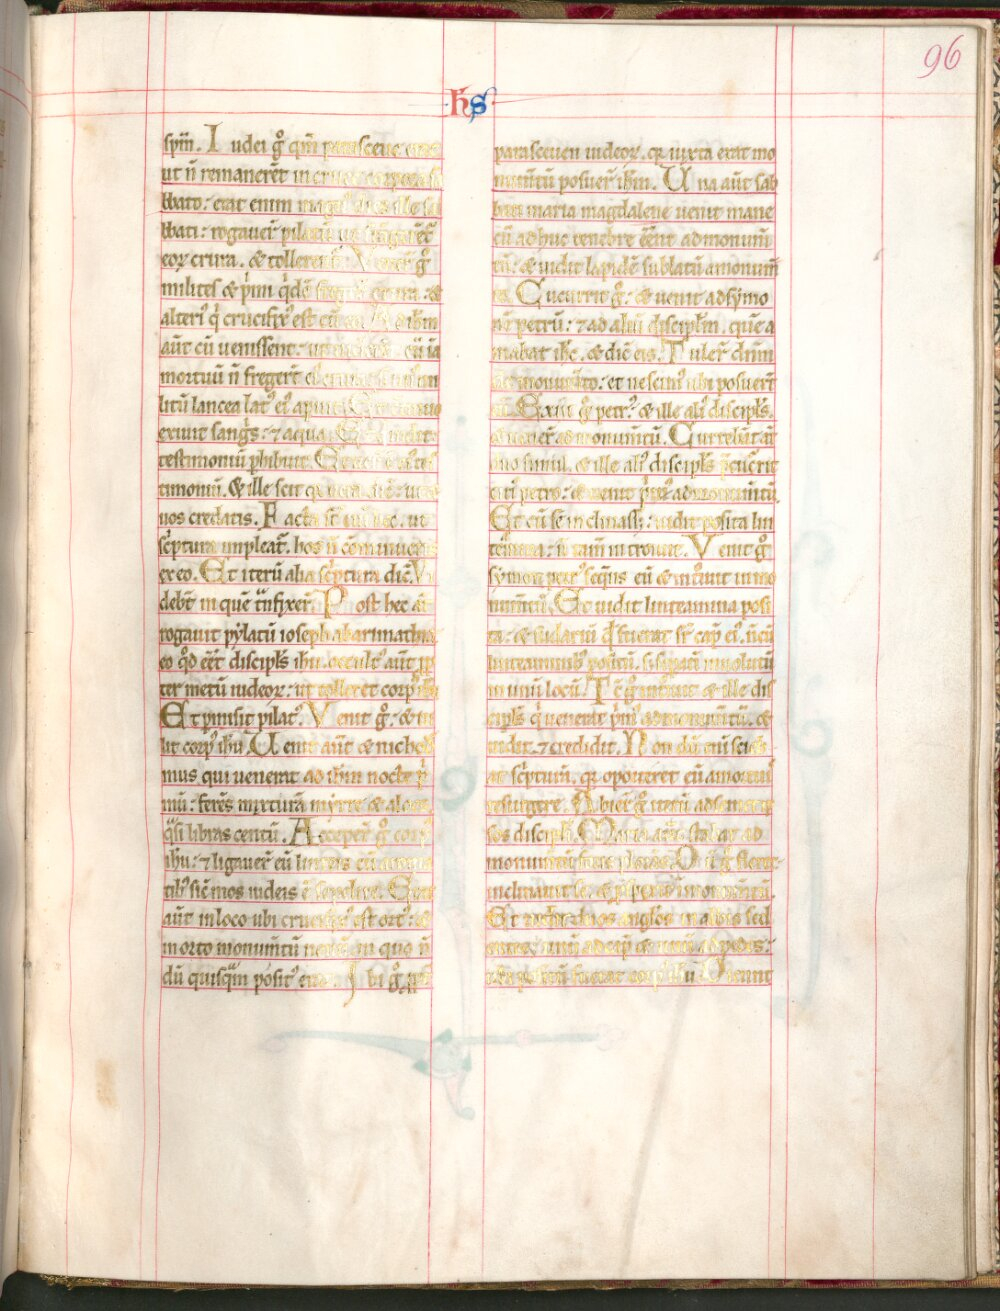 96
hs
spm̃. Iudei g̊ qm̃ parasceue erat
ut ñ remanerẽt in cruce corpora sa
bbato: erat enim magn' dies ille sa
bbati: rogauer̃ pilatũ ut frãgãt̃
eoꝝ crura. & tollerent̃. Vener̃ g̊
milites & p̃mi q̇dẽ freger̃t crura: &
alteri' q̇ crucifix' est cũ eo. Ad ihm̃
aũt cũ uenissent: ut uider̃t eũ iã
mortuũ ñ freger̃t ei' crura: s; un' mi
litũ lancea lat' ei' apuit. Et ↄtinuo
exiuit sang̃s: ⁊ aqua. Et q̇ uidit:
testimoniũ phibuit. Et uerũ ẽ ei' tes
timoniũ. & ille scit qꝛ uera dic̃: ut &
uos credatis. Facta st̃ eni hec. ut
sc̃ptura impleat̃. hos ñ cõminuetis
ex eo. Et iterũ alia sc̃ptura dic̃. Vi
debt̃ in quẽ t̃nsfixer̃. Post hec aũ
rogauit pẏlatũ ioseph ab arimathia
eo qd̃ eẽt discipl̃s ihu. occult' aũt pp
ter metũ iudeoꝝ: ut tolleret corp' ihu
Et pmisit pilat'. Venit g̊: & tu
lit corp' ihu. Uenit aũt & nicho
mus qui uenerat ad ihm̃ nocte p̃
mũ: ferẽs mixturã mirre & aloes
q̃si libras centũ. Acceper̃ g̊ corp'
ihu: ⁊ ligauer̃ eũ linteis cũ aroma
tib' sic̃ mos iudeis ẽ sepelire. Erat
aũt in loco ubi crucifix' est ort': &
in orto monumt̃ũ nouũ in quo ñ
dũ quisq̃m posit' erat. Ibi g̊ ppt̃
parasceuen iudeoꝝ. qꝛ iuxta erat mo
numt̃ũ posuer̃ ihm̃. Una aũt sab
bati maria magdalene uenit mane
cũ adhuc tenebre eẽnt ad monum̃
tũ: & uidit lapidẽ sublatũ a monum̃
to. Cucurrit g̊: & uenit ad sẏmo
nẽ petrũ: ⁊ ad aliũ discipl̃m. quẽ a
mabat ihc̃. & dic̃ eis. Tuler̃ dnm̃
de monumt̃o: et nescim' ubi posuer̃t
eũ. Exiit g̊ petr'. & ille ali' discipl̃s.
& uener̃ ad monumt̃ũ. Currebãt aũ
duo simul. & ille ali' discipl̃s p̃cucrrit
citi' petro: & uenit p̃m' ad monumt̃ũ.
Et cũ se inclinass;: uidit posita lin
teamina: ñ tam̃ introiuit. Venit g̊
sẏmon petr' seq̃ns eũ & int̃uit in mo
numt̃ũ. Et uidit linteamina posi
ta: & sudariũ qd̃ fuerat sr̃ cap' ei'. ñ cũ
linteaminib' positũ. s; sipatĩ inuolutũ
in unũ locũ. Tc̃ g̊ int̃uit & ille dis
cipl̃s q̇ uenerat p̃m' ad monumt̃ũ. &
uidit. ⁊ credidit. Non dũ eni scieb
at sc̃pturã. qꝛ oporteret eũ a mortui'
resurgere. Abier̃ g̊ iterũ ad semetip
sos discipl̃i. Maria aũt stabat ad
monumt̃ũ foris plorãs. Dũ g̊ fleret:
inclinauit se: & p̃spexit in monumt̃ũ.
Et uidit duos angl̃os in albis sed
entes: unũ ad cap' & unũ ad pedes:
ubi positũ fuerat corp' ihu. Dicunt